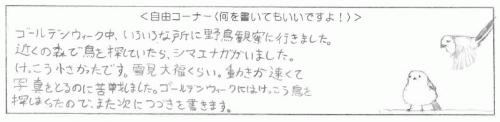 <自由コーナー(何を書いてもいいですよ!)>
ゴールデンウィーク中、いろいろな所に野鳥観察に行きました。
近くの森で鳥を探していたら、シマエナガがいました。
けっこう小さかったです。雪見大福くらい。動きが速くて
写真をとるのに苦戦しました。ゴールデンウィークにはけっこう鳥を
探しまくったので、また次につづきを書きます。